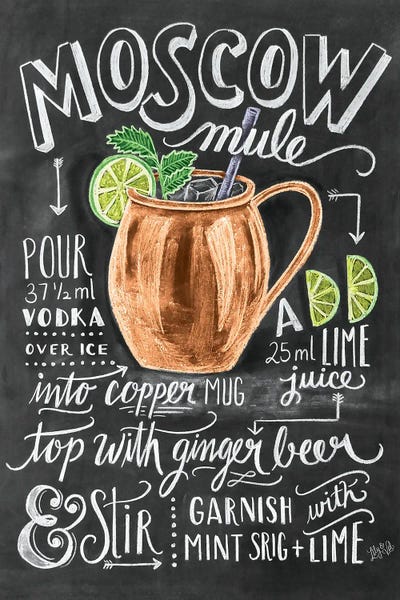 MOSCOW
mule
POUR
37 ½ ml
VODKA
OVER ICE
into copper MUG
A
25 ml LIME
juice
top with ginger beer
& Stir
GARNISH with
MINT SRIG + LIME
Lily & Val